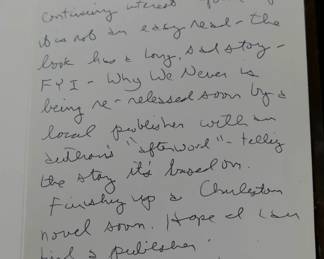 continuing interest
it was not an easy read - the
book has a long, sad story -
FYI - Why We Never is
being re-released soon by a
local publisher with an
author's "afterword" - telling
the story it's based on.
Finishing up a Charleston
novel soon. Hope I can
find a publisher.